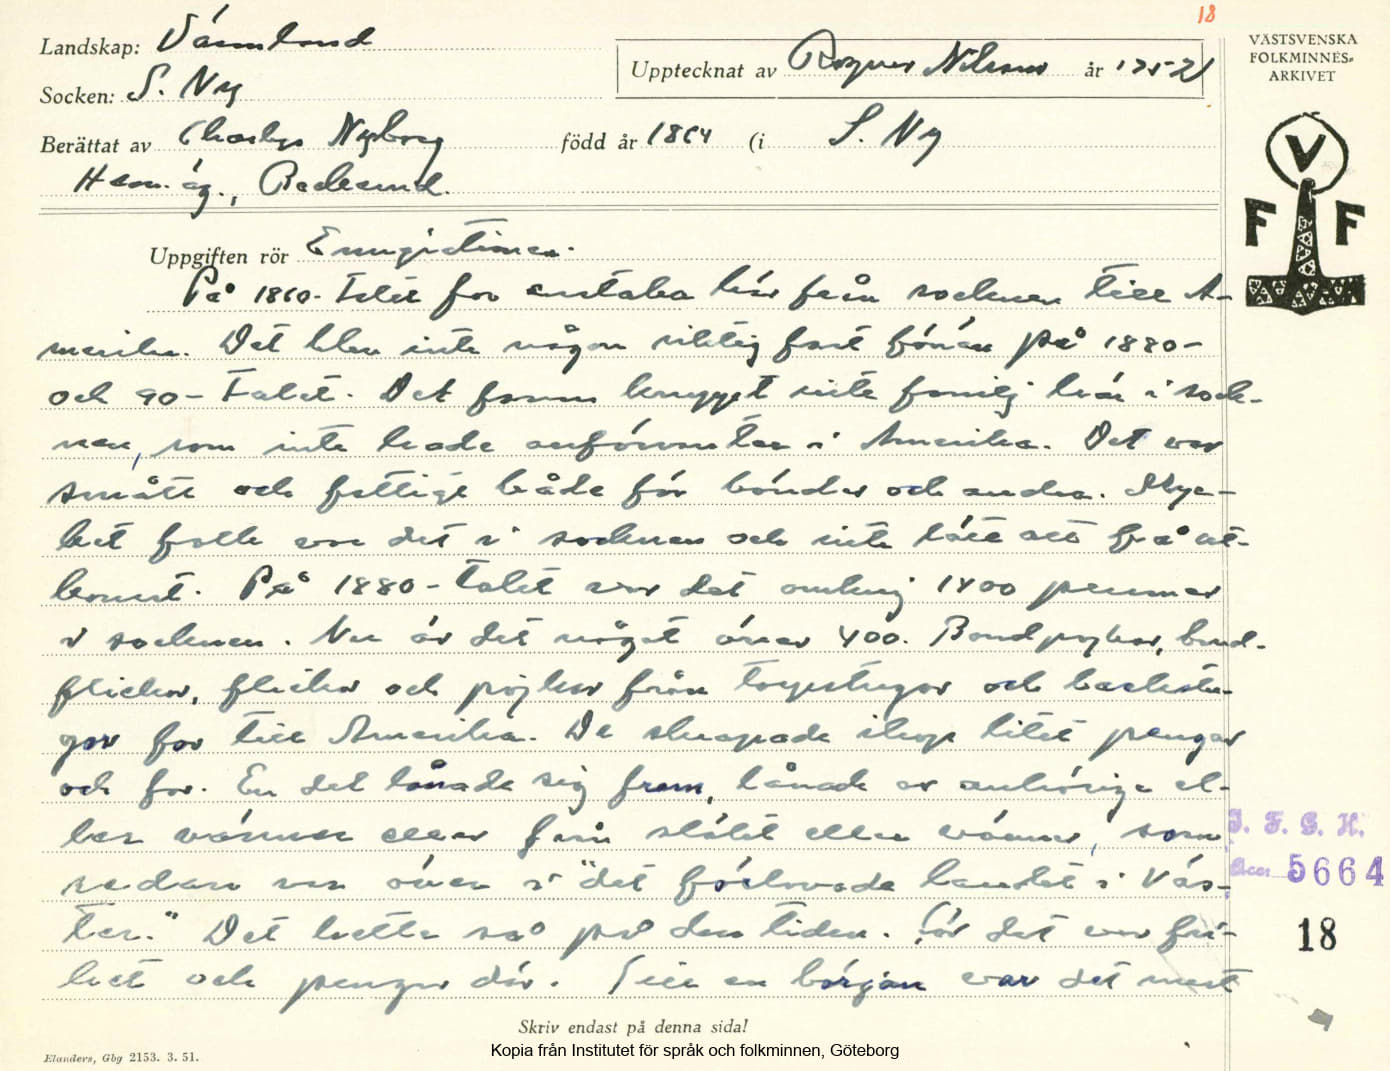 18
Landskap: Värmland
Upptecknat av Ragnar Nilsson år 1952
VÄSTSVENSKA
FOLKMINNES-
ARKIVET
Socken: S. Ny
Berättat av Charles Nyborg född år 1864 (i S. Ny
Hem. äg.,
V
F F
Uppgiften rör Emigrationen.
På 1860-talet for enstaka här från socknen till A-
merika. Det blev inte någon riktig fart förrän på 1880-
och 90-talet. Det fanns knappast inte familj här i sock-
nen, som inte hade anförvanter i Amerika. Det var
smått och fattigt både för bönder och andra. Myc-
ket folk var det i socknen och inte lätt att få ut-
komst. På 1880-talet var det omkring 1400 personer
i socknen. Nu är det något över 400. Bondpojkar, bond-
flickor, flickor och pojkar från torpstugor och backstu-
gor for till Amerika. De skrapade ihop litet pengar
och for. En del lånade sig fram, lånade av anhöriga el-
ler vänner eller från släkt eller vänner, som
redan var över i "det förlovade landet i Väs-
ter." Det hette så på den tiden. För det var fri-
het och pengar där. Till en början var det mest
I. F. G. H.
Acc. 5664
18
Skriv endast på denna sida!
Elanders, Gbg 2153. 3. 51.
Kopia från Institutet för språk och folkminnen, Göteborg